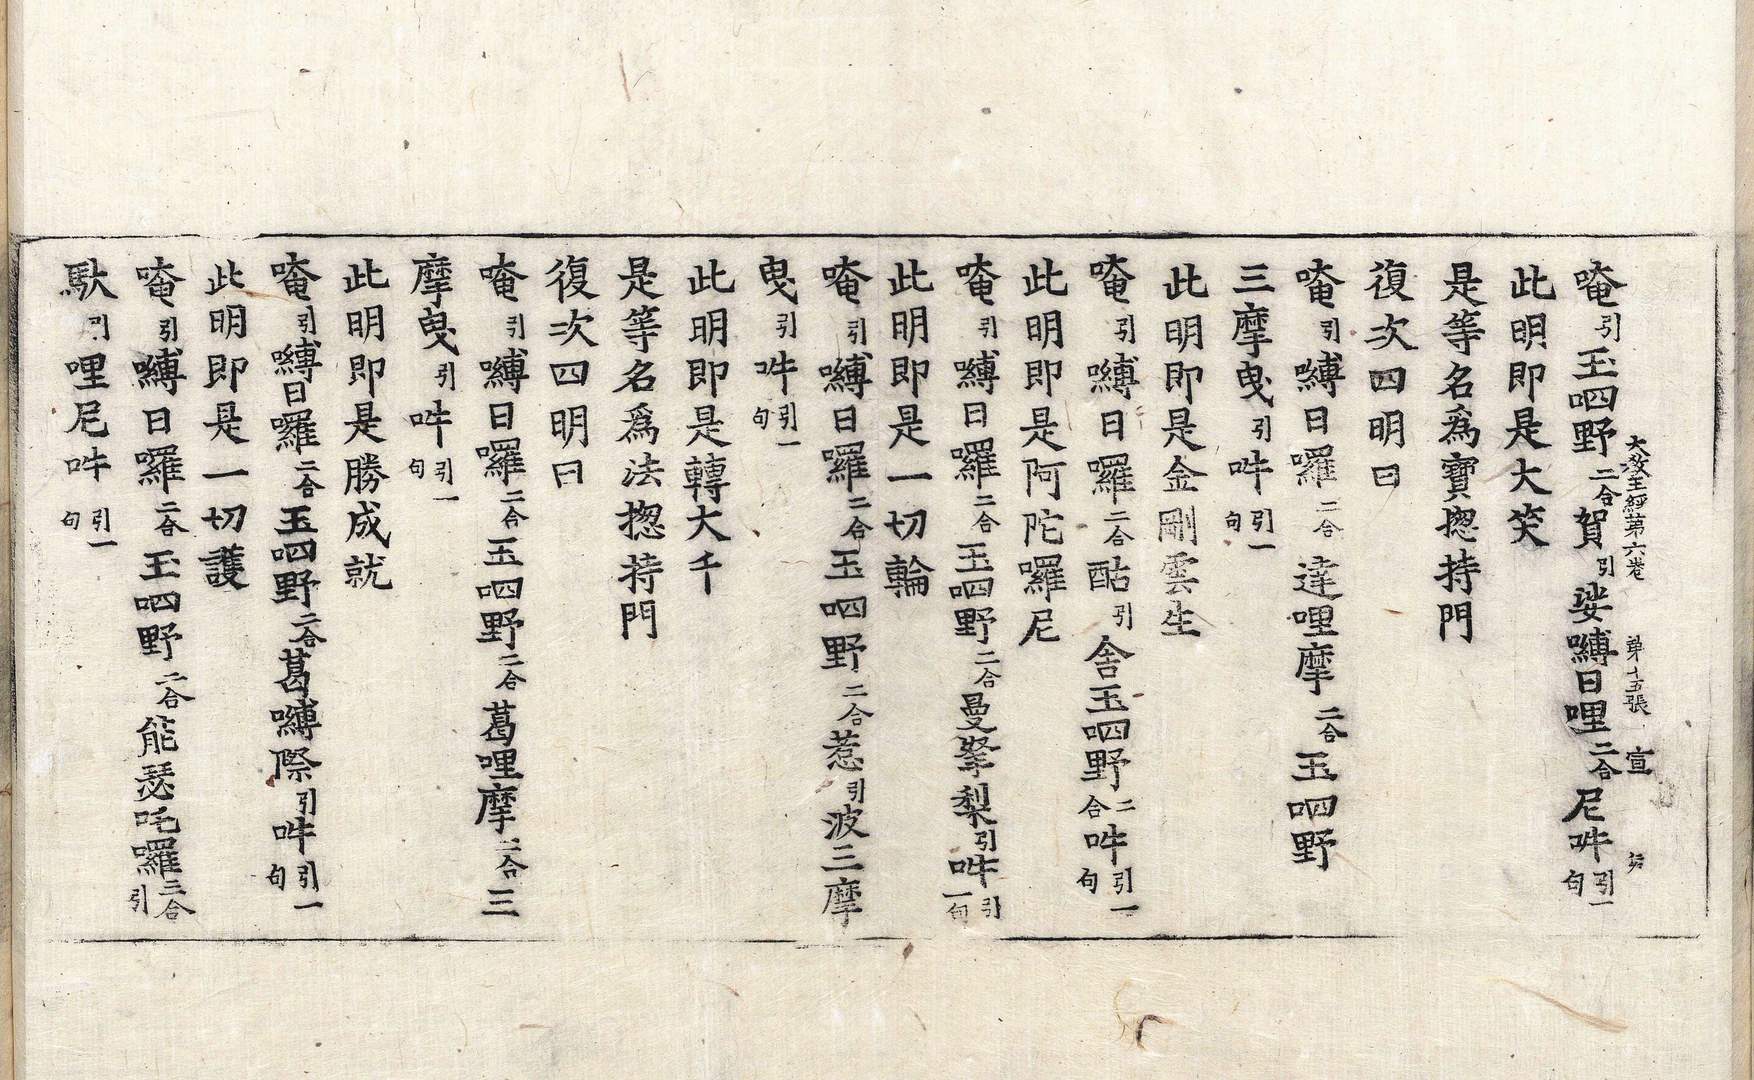 唵引玉呬野二合賀引娑嚩日哩二合尼吽引一句
大教王經第六卷 第十五張 宣
此明即是大笑
是等名為寶揔持門
復次四明曰
唵引嚩日囉二合達哩摩二合玉呬野
三摩曳引吽引一句
此明即是金剛雲生
唵引嚩日囉二合酤引舍玉呬野二合吽引一句
此明即是阿陀囉尼
唵引嚩日囉二合玉呬野二合曼拏梨引吽引一句
此明即是一切輪
唵引嚩日囉二合玉呬野二合惹引波三摩
曳引吽引一句
此明即是轉大千
是等名為法揔持門
復次四明曰
唵引嚩日囉二合玉呬野二合葛哩摩二合三
摩曳引吽引一句
此明即是勝成就
唵引嚩日囉二合玉呬野二合葛嚩際引吽引一句
此明即是一切護
唵引嚩日囉二合玉呬野二合能瑟吒囉三合引
馱引哩尼吽引一句